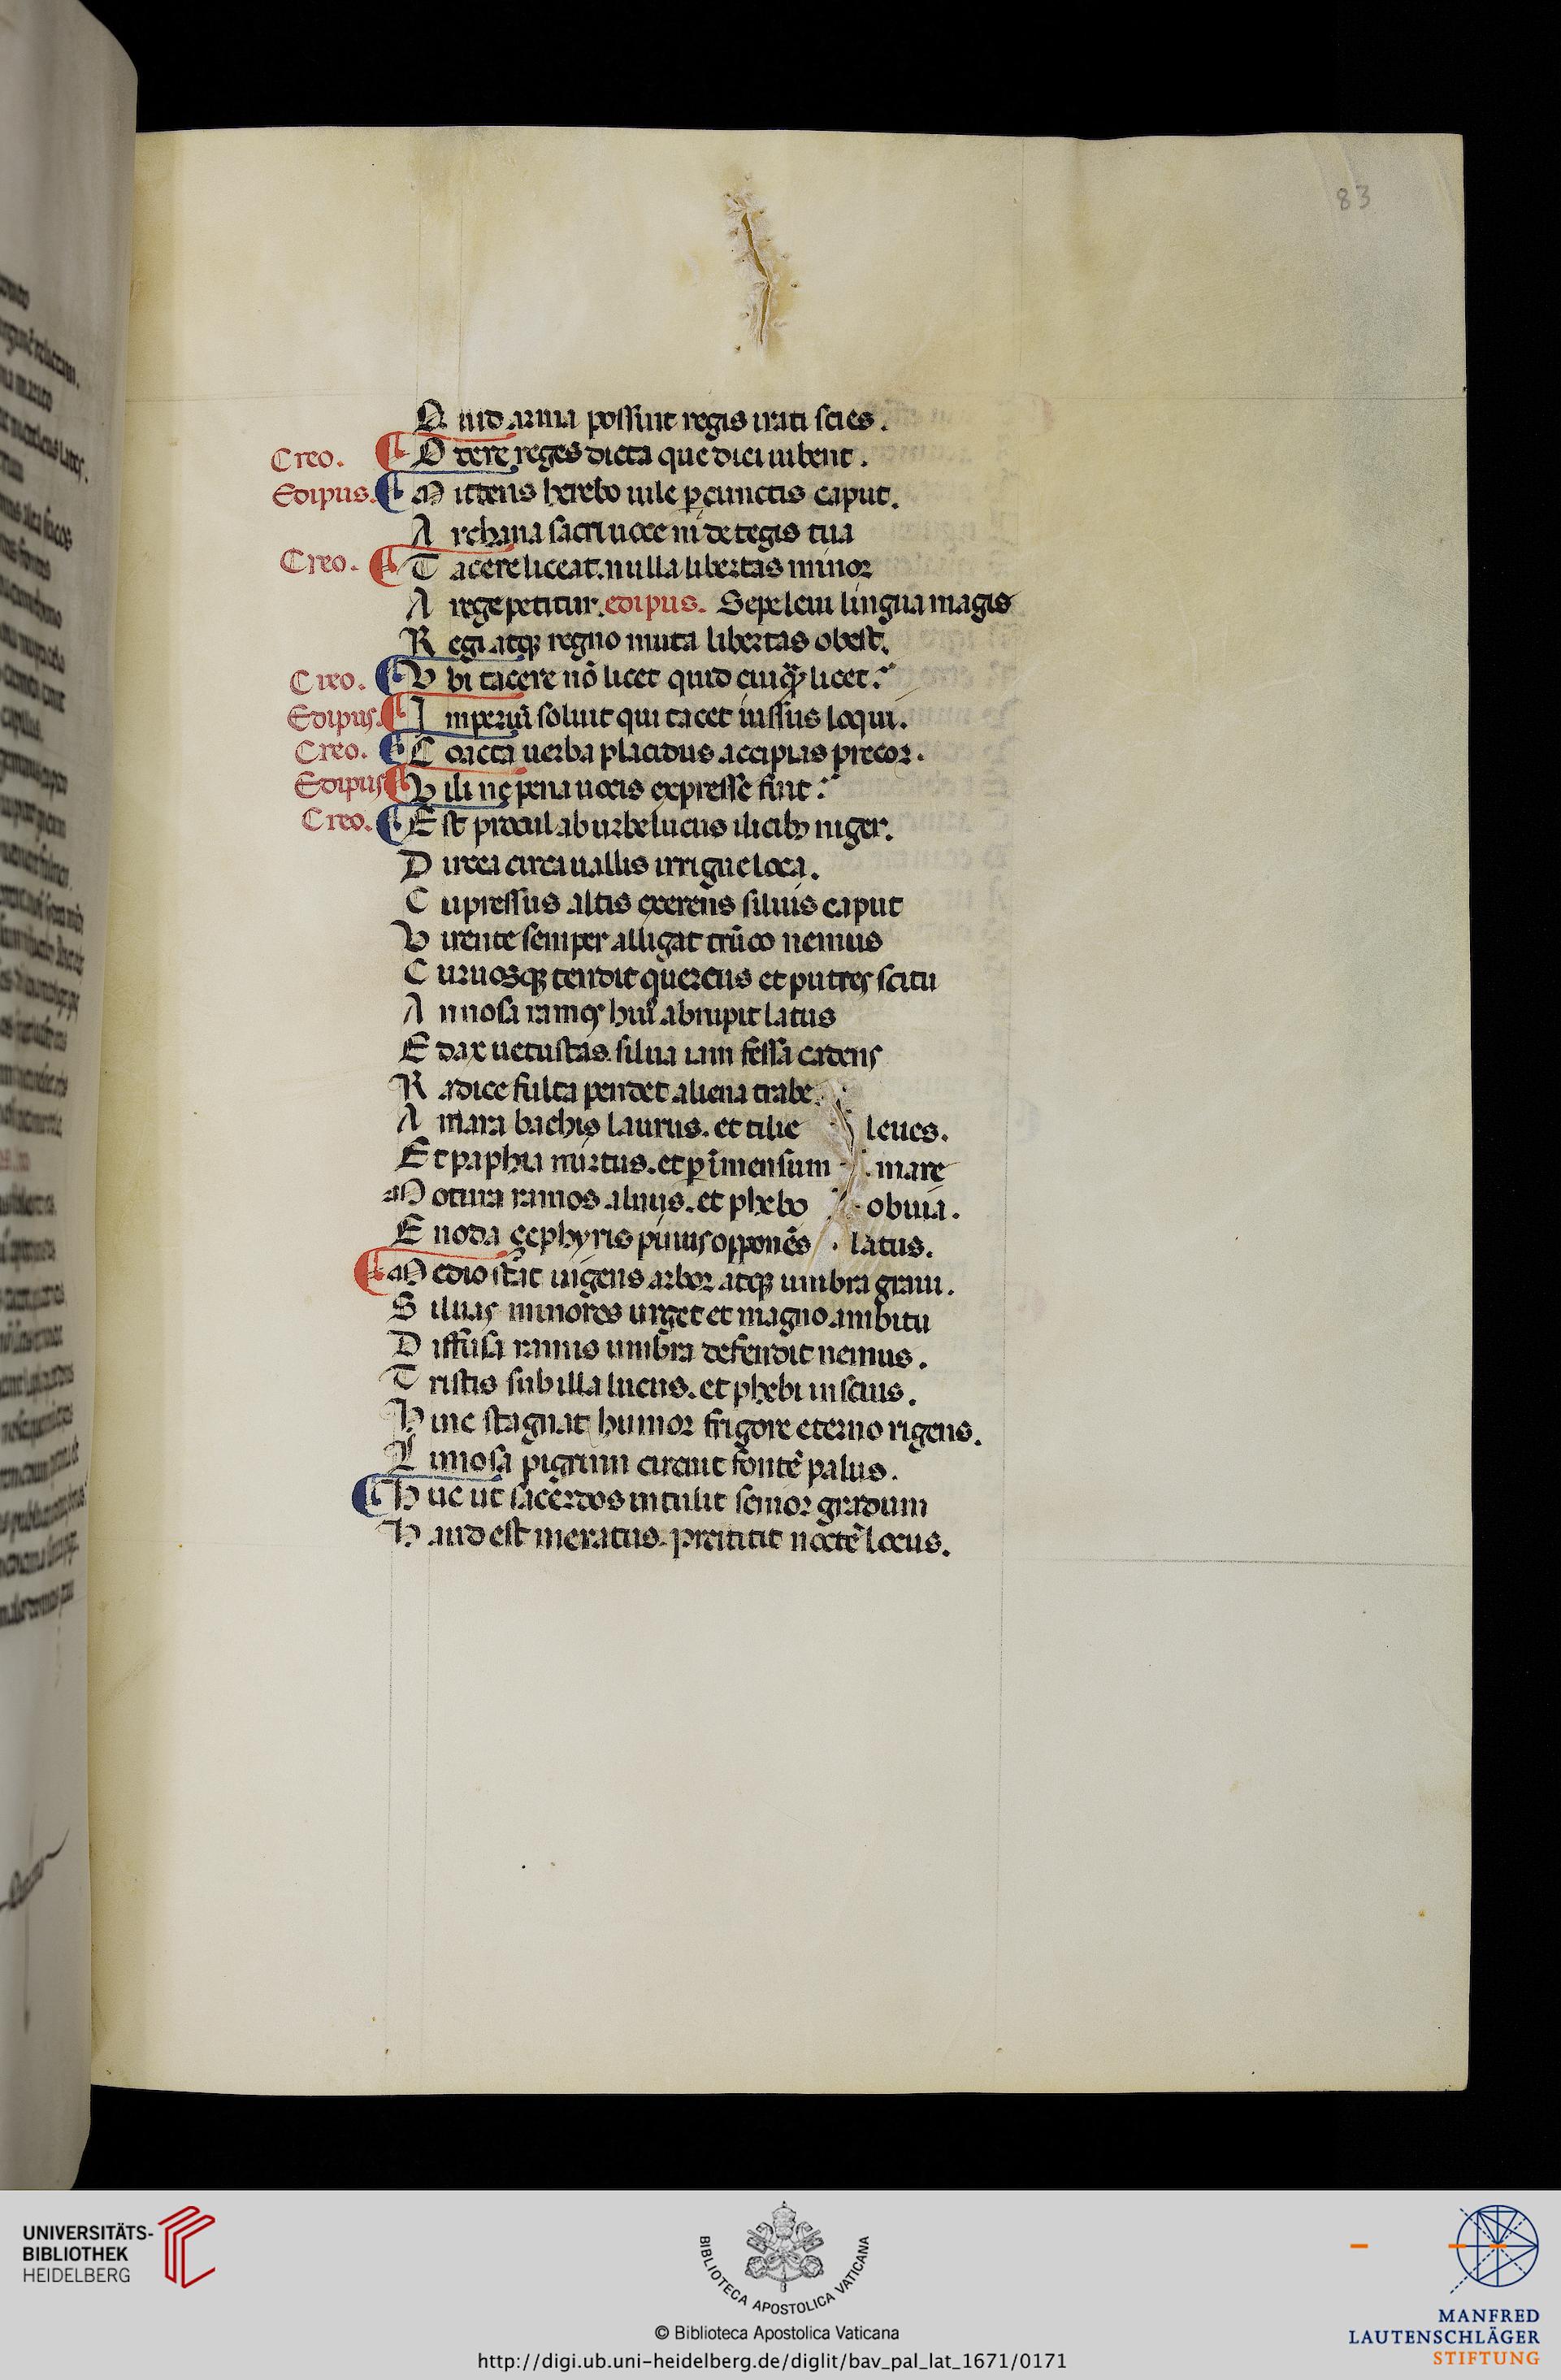 83
Quid arma possint regis irati scies.
Creo. Odere reges dicta que dici iubent.
Edipus. Mitteris herebo uile ꝑ cunctis caput.
Archana sacri uoce ni detegis tua
Creo. Tacere liceat. nulla libertas minor
A rege petitur. edipus. Sepe leui lingua magis
Regi atqꝫ regno muta libertas obest.
Creo. Vbi tacere nō licet quid cuiqꝫ licet?
Edipus. Imperiū soluit qui tacet iussus loqui.
Creo. Coacta uerba placidus accipias precor.
Edipus Vlli ne pena uocis expresse fuit?
Creo. Est procul ab urbe lucus ilicibꝫ niger.
Dircea circa uallis irrigue loca.
Cupressus altis exerens siluis caput
Virente semper alligat trūco nemus
Curuosqꝫ tendit quercus et putres scitu
Annosa ramos huiꝰ abrupit latus
Edax uetustas. silua iam fessa cadens
Radice fulta pendet aliena trabe.
Amara bachis laurus. et tilie leues.
Et paphia mirtus. et ꝑ īmensum mare
Motura ramos alnus. et phebo obuia.
Enoda zephyris pinus opponēs latus.
Medio stat ingens arbor atqꝫ umbra graui.
Siluas minores urget et magno ambitu
Diffusa ramis umbra defendit nemus.
Tristis sub illa lucus. et phebi inscius.
Hinc stagnat humor frigore eterno rigens.
Limosa pigrum circuit fontē palus.
Huc ut sacerdos intulit senior gradum
Haud est meratus. prestitit noctē locus.
UNIVERSITÄTS-
BIBLIOTHEK
HEIDELBERG
BIBLIOTECA APOSTOLICA VATICANA
© Biblioteca Apostolica Vaticana
http://digi.ub.uni-heidelberg.de/diglit/bav_pal_lat_1671/0171
MANFRED
LAUTENSCHLÄGER
STIFTUNG